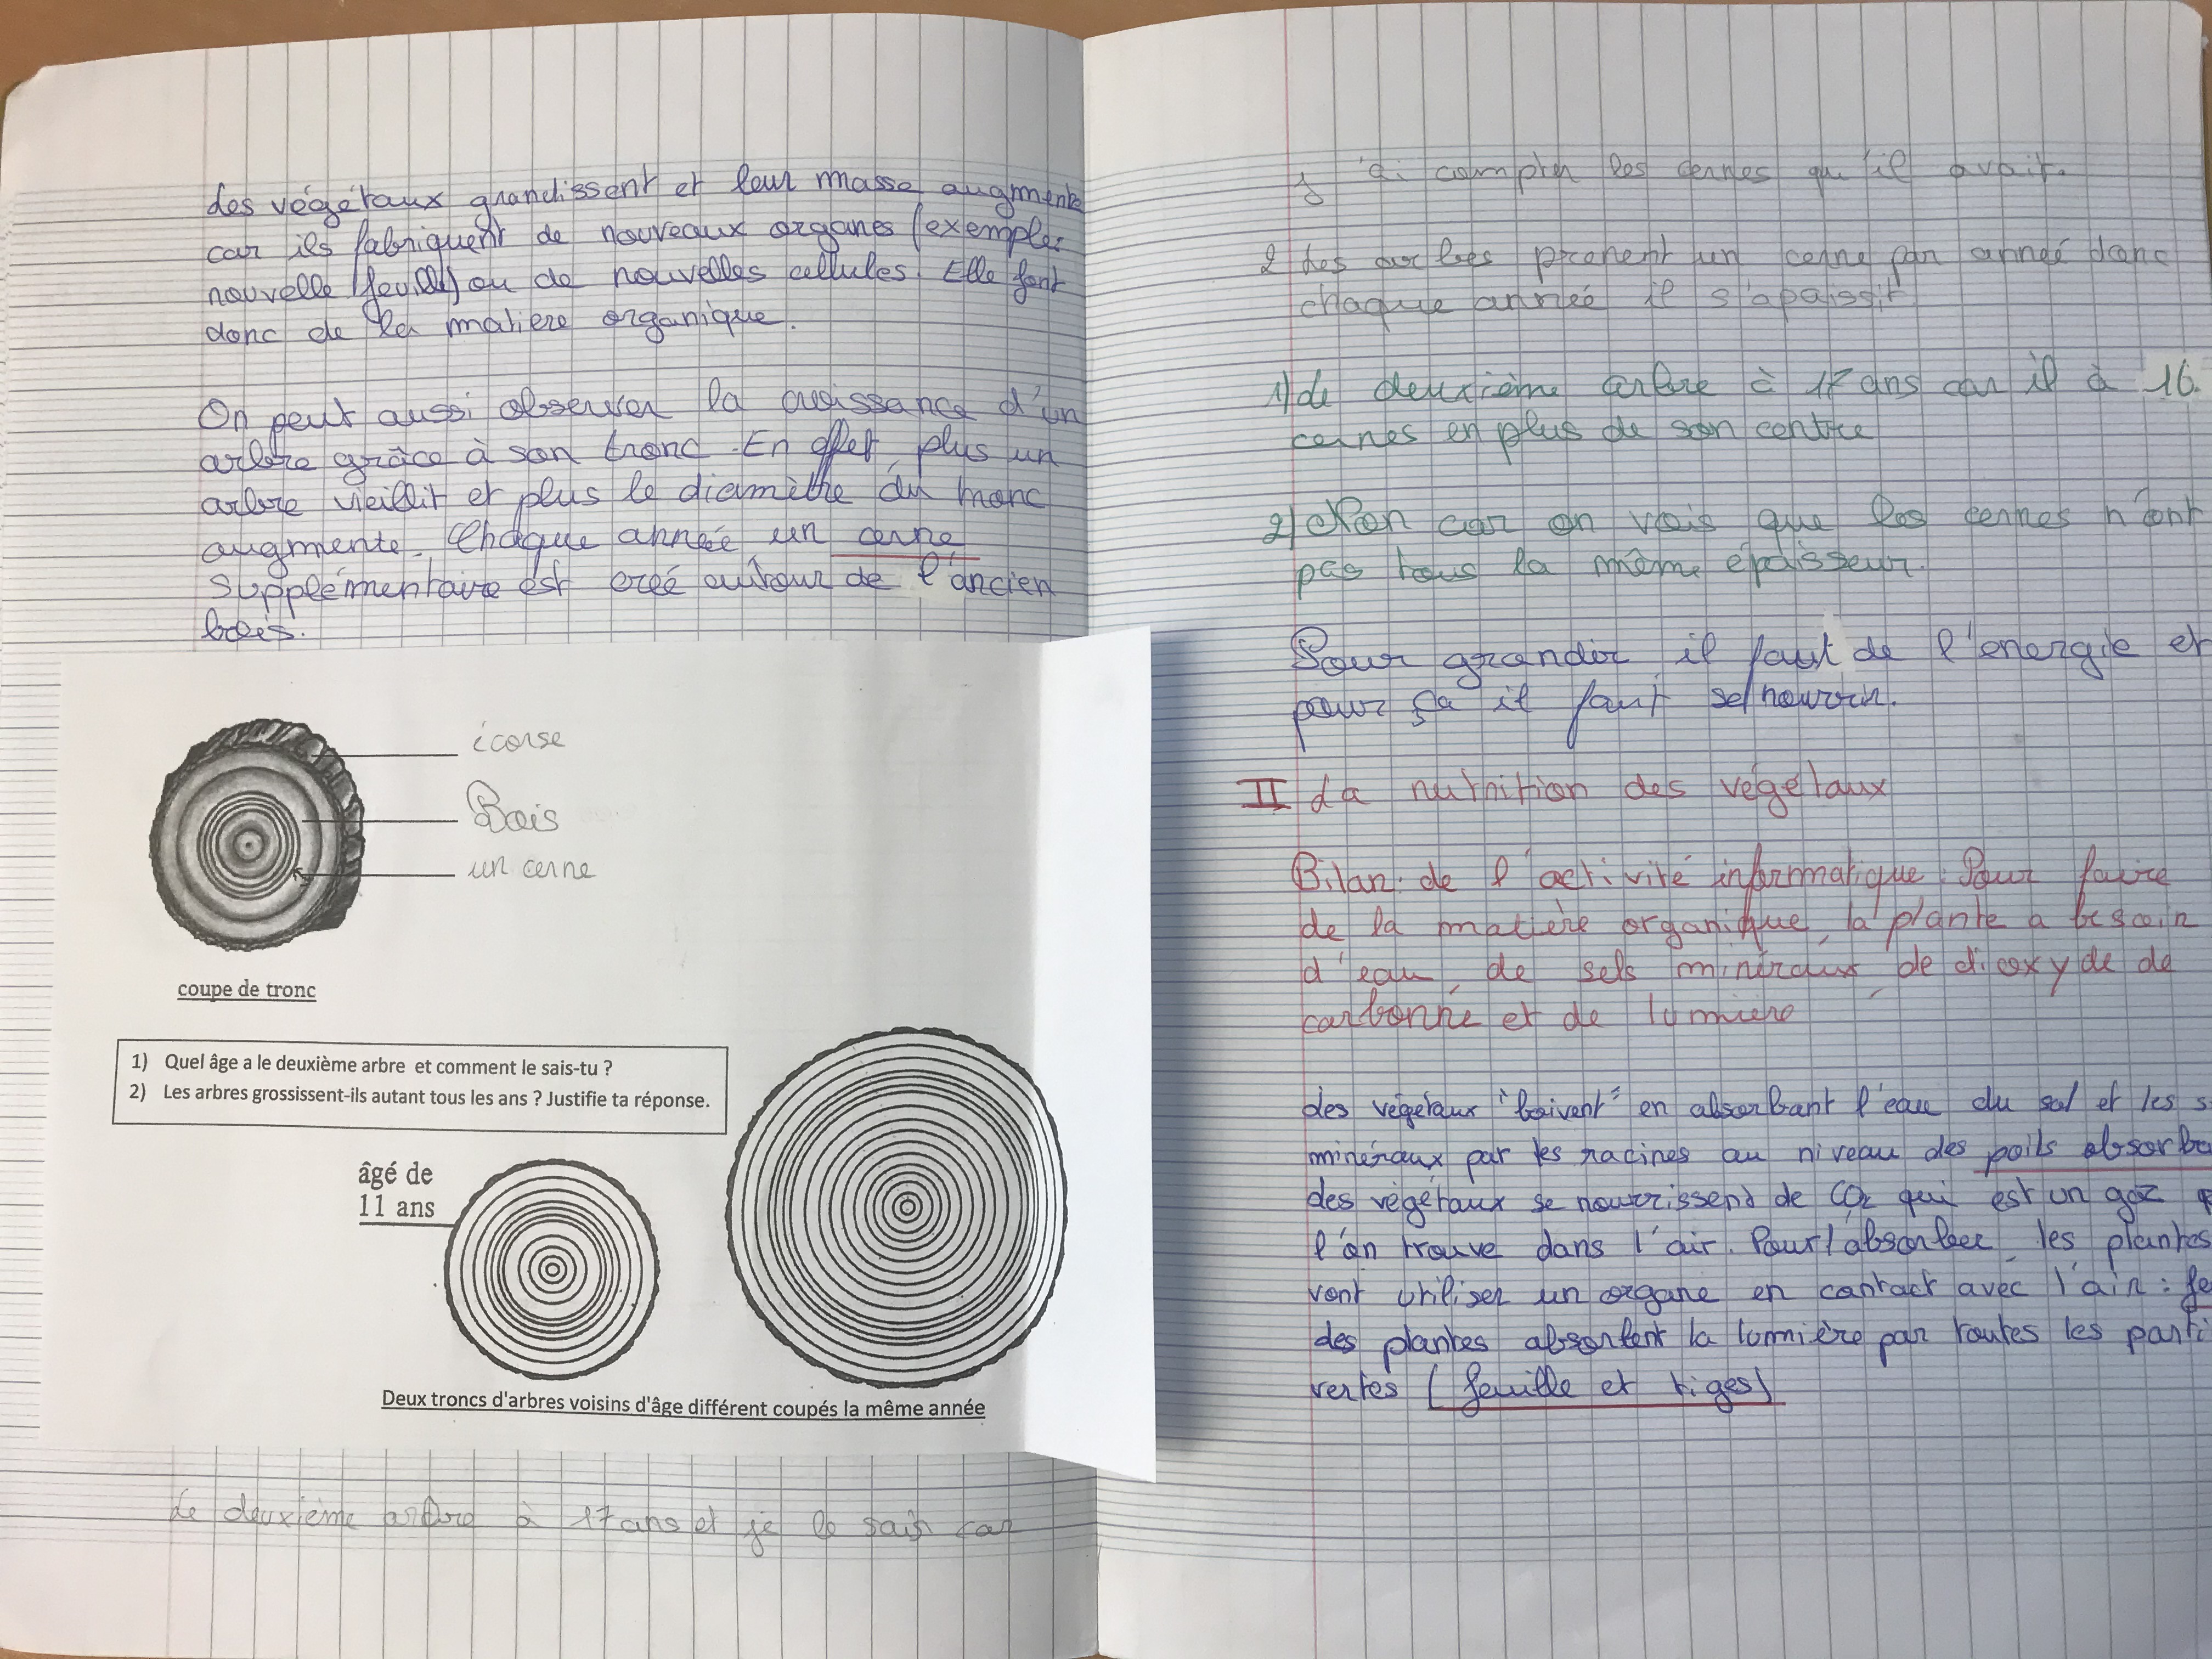 Les végétaux grandissent et leur masse augmente
car ils fabriquent de nouveaux organes (exemple:
nouvelle feuille) ou de nouvelles cellules. Elle font
donc de la matière organique.
On peut aussi observer la croissance d'un
arbre grâce à son tronc. En effet, plus un
arbre vieillit et plus le diamètre du tronc
augmente. Chaque année, un cerne
supplémentaire est créé autour de l'ancien
bois.
écorse
Bois
un cerne
coupe de tronc
1) Quel âge a le deuxième arbre et comment le sais-tu ?
2) Les arbres grossissent-ils autant tous les ans ? Justifie ta réponse.
âgé de
11 ans
Deux troncs d'arbres voisins d'âge différent coupés la même année
Le deuxième arbre à 17 ans et je le sais car
j'ai compter les cernes qu'il avait.
2 Les arbres prenent un cerne par anneé donc
chaque année il s'apaissit
1) Le deuxième arbre à 17 ans car il à 16.
cernes en plus de son centre
2) Non car on vois que les cernes n'ont
pas tous la même épaisseur.
Pour grandir il faut de l'energie et
pour ça il faut se nourrir.
II La nutrition des végétaux
Bilan de l'activité informatique : Pour faire
de la matière organique, la plante a besoin
d'eau, de sels minéraux, de dioxyde de
carbonne et de lumière
Les végétaux "boivent" en absorbant l'eau du sol et les s
minéraux par les racines au niveau des poils absorba
Les végétaux se nourrissent de CO2 qui est un gaz
l'on trouve dans l'air. Pour l'absorber, les plantes
vont utiliser un organe en contact avec l'air : fe
Les plantes absorbent la lumière par toutes les parti
vertes (feuille et tiges)